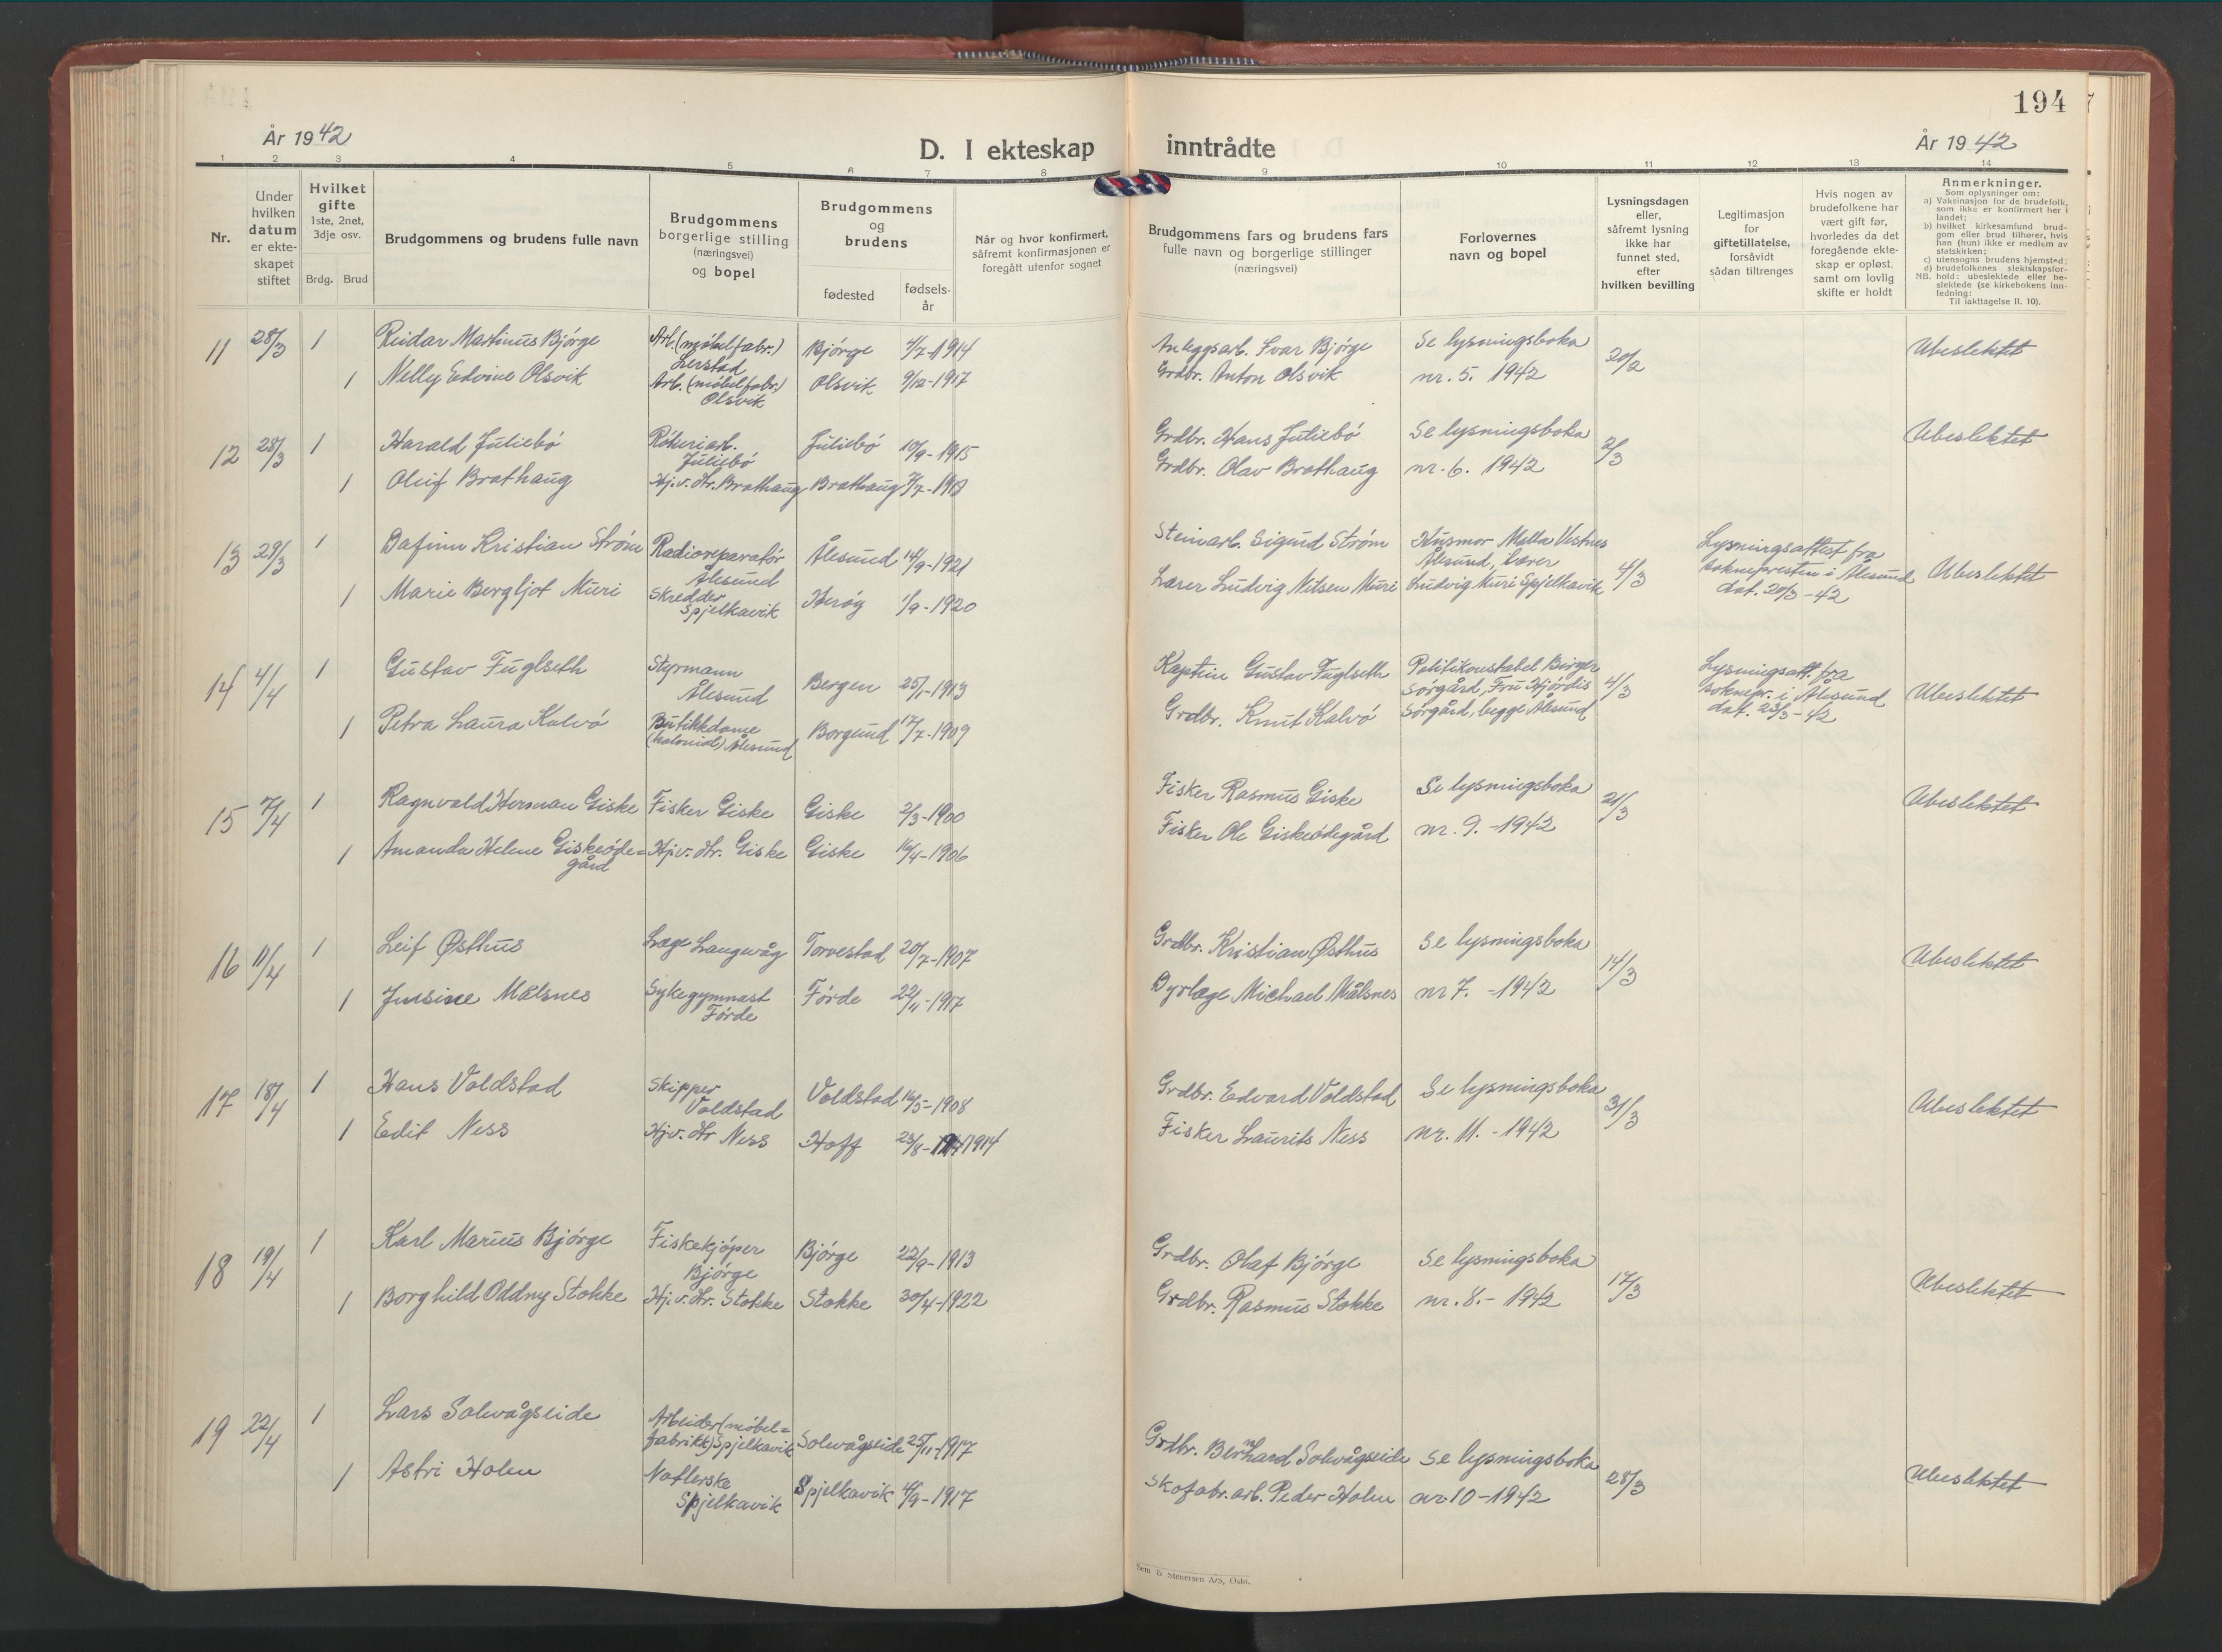 194
År 1942
D. I ekteskap
inntrådte
År 1942
1 2 3 4 5 6 7 8 9 10 11 12 13 14
Nr.
Under
hvilken
datum
er ekte-
skapet
stiftet
Hvilket
gifte
1ste, 2net,
3dje osv.
Brdg. Brud
Brudgommens og brudens fulle navn
Brudgommens
borgerlige stilling
(næringsvei)
og bopel
Brudgommens
og
brudens
fødested
fødsels-
år
Når og hvor konfirmert,
såfremt konfirmasjonen er
foregått utenfor sognet
Brudgommens fars og brudens fars
fulle navn og borgerlige stillinger
(næringsvei)
Forlovernes
navn og bopel
Lysningsdagen
eller,
såfremt lysning
ikke har
funnet sted,
efter
hvilken bevilling
Legitimasjon
for
giftetillatelse,
forsåvidt
sådan tiltrenges
Hvis nogen av
brudefolkene har
vært gift før,
hvorledes da det
foregående ekte-
skap er opløst,
samt om lovlig
skifte er holdt
Anmerkninger.
Som oplysninger om:
a) Vaksinasjon for de brudefolk,
som ikke er konfirmert her i
landet;
b) hvilket kirkesamfund brud-
gom eller brud tilhører, hvis
han (hun) ikke er medlem av
statskirken;
c) utensogns brudens hjemsted;
d) brudefolkenes slektskapsfor-
hold: ubeslektede eller be-
slektede (se kirkebokens inn-
ledning:
NB.
Til iakttagelse II. 10).
11 28/3 1 Reidar Martinus Bjørge Arb. (møbelfabr.) Lerstad Bjørge 4/7-1914 Anleggsarb. Ivar Bjørge Se lysningsboka 20/2 Ubeslektet
1 Nelly Edvine Olsvik Arb. (møbelfabr.) Olsvik Olsvik 9/12-1917 Grdbr. Anton Olsvik nr. 5. 1942
12 28/3 1 Harald Juliebø Røkeriarb. Juliebø Juliebø 10/9-1915 Grdbr. Hans Juliebø Se lysningsboka 2/3 Ubeslektet
1 Oluf Brathaug Hj. v. Hr. Brathaug Brathaug 7/7-1918 Grdbr. Olav Brathaug nr. 6. 1942
13 29/3 1 Dafinn Kristian Strøm Radioreparatør Ålesund Ålesund 14/9-1921 Steinarb. Sigurd Strøm Husmor Malla Vestnes Ålesund, lærer 4/3 Lysningsattest fra sokneprestn i Ålesund dat. 20/3-42 Ubeslektet
1 Marie Bergljot Muri Skredder Spjelkavik Herøy 1/9-1920 Lærer Ludvig Nilsen Muri Ludvig Muri Spjelkavik
14 4/4 1 Gustav Fuglseth Styrmann Ålesund Bergen 25/1-1913 Kaptein Gustav Fuglseth Politikonstabel Birger Sørgård, Fru Hjørdis 4/3 Lysningsatt. fra soknepr. i Ålesund dat. 23/3-42 Ubeslektet
1 Petra Laura Kalvø Butikkdame (kolonial) Ålesund Borgund 17/7-1909 Grdbr. Knut Kalvø Sørgård, begge Ålesund
15 7/4 1 Ragnvald Herman Giske Fisker Giske Giske 2/3-1900 Fisker Rasmus Giske Se lysningsboka 21/3 Ubeslektet
1 Amanda Helene Giskeøde=gård Hj. v. Hr. Giske Giske 16/4-1906 Fisker Ole Giskeødegård nr. 9. -1942
16 11/4 1 Leif Østhus Læge Langevåg Torvestad 20/7-1907 Grdbr. Kristian Østhus Se lysningsboka 14/3 Ubeslektet
1 Jensine Målsnes Sykegymnast Førde Førde 22/11-1917 Dyrlæge Michael Målsnes nr 7. -1942
17 18/4 1 Hans Voldstad Skipper Voldstad Voldstad 16/5-1908 Grdbr. Edvard Voldstad Se lysningsboka 31/3 Ubeslektet
1 Edit Ness Hj. v. Hr Ness Hoff 23/8- 1914 Fisker Laurits Ness nr. 11. -1942
18 19/4 1 Karl Marius Bjørge Fiskekjøper Bjørge Bjørge 22/9-1913 Grdbr. Olaf Bjørge Se lysningsboka 17/3 Ubeslektet
1 Borghild Oddny Stokke Hj. v. Hr. Stokke Stokke 30/4-1922 Grdbr. Rasmus Stokke nr. 8. - 1942
19 22/4 1 Lars Solevågseide Arbeider (møbel=fabrikk) Spjelkavik Solevågseide 25/11-1917 Grdbr. Bernhard Solevågseide Se lysningsboka 28/3 Ubeslektet
1 Astri Holen Notlerske Spjelkavik Spjelkavik 4/9-1917 Skofabr.arb. Peder Holen nr 10-1942
Sem & Stenersen A/S, Oslo.